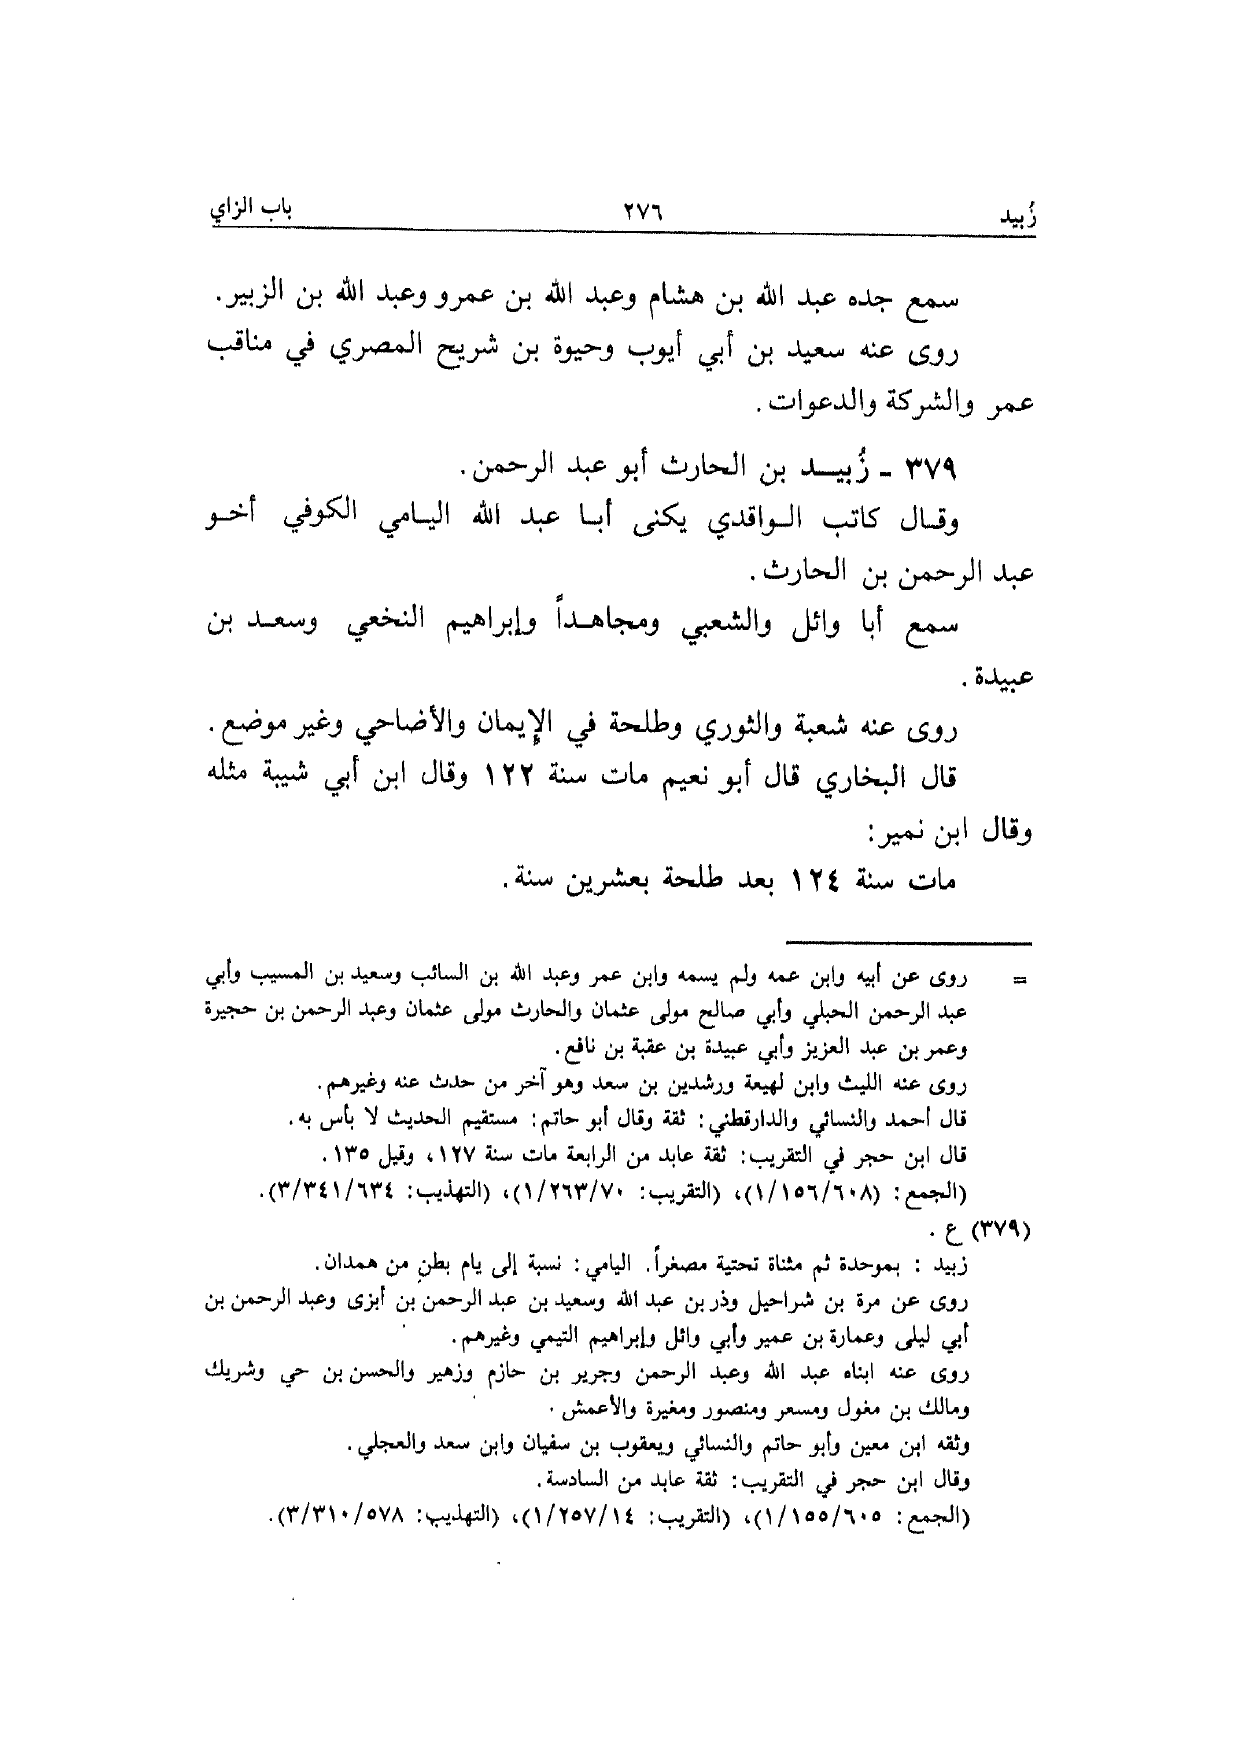 زُبيد ٢٧٦ باب الزاي
سمع جده عبد الله بن هشام وعبد الله بن عمرو وعبد الله بن الزبير.
روى عنه سعيد بن أبي أيوب وحيوة بن شريح المصري في مناقب
عمر والشركة والدعوات.
٣٧٩ - زُبيـد بن الحارث أبو عبد الرحمن.
وقال كاتب الواقدي يكنى أبا عبد الله اليامي الكوفي أخو
عبد الرحمن بن الحارث.
سمع أبا وائل والشعبي ومجاهداً وإبراهيم النخعي وسعد بن
عبيدة.
روى عنه شعبة والثوري وطلحة في الإيمان والأضاحي وغير موضع.
قال البخاري قال أبو نعيم مات سنة ١٢٢ وقال ابن أبي شيبة مثله
وقال ابن نمير:
مات سنة ١٢٤ بعد طلحة بعشرين سنة.
= روى عن أبيه وابن عمه ولم يسمه وابن عمر وعبد الله بن السائب وسعيد بن المسيب وأبي
عبد الرحمن الحبلي وأبي صالح مولى عثمان والحارث مولى عثمان وعبد الرحمن بن حجيرة
وعمر بن عبد العزيز وأبي عبيدة بن عقبة بن نافع.
روى عنه الليث وابن لهيعة ورشدين بن سعد وهو آخر من حدث عنه وغيرهم.
قال أحمد والنسائي والدارقطني: ثقة وقال أبو حاتم: مستقيم الحديث لا بأس به.
قال ابن حجر في التقريب: ثقة عابد من الرابعة مات سنة ١٢٧، وقيل ١٣٥.
(الجمع: ١/١٥٦/٦٠٨)، (التقريب: ١/٢٦٣/٧٠)، (التهذيب: ٣/٣٤١/٦٣٤).
(٣٧٩) ع.
زبيد : بموحدة ثم مثناة تحتية مصغراً. اليامي: نسبة إلى يام بطن من همدان.
روى عن مرة بن شراحيل وذر بن عبد الله وسعيد بن عبد الرحمن بن أبزى وعبد الرحمن بن
أبي ليلى وعمارة بن عمير وأبي وائل وإبراهيم التيمي وغيرهم.
روى عنه ابناه عبد الله وعبد الرحمن وجرير بن حازم وزهير والحسن بن حي وشريك
ومالك بن مغول ومسعر ومنصور ومغيرة والأعمش.
وثقه ابن معين وأبو حاتم والنسائي ويعقوب بن سفيان وابن سعد والعجلي.
وقال ابن حجر في التقريب: ثقة عابد من السادسة.
(الجمع: ١/١٥٥/٦٠٥)، (التقريب: ١/٢٥٧/١٤)، (التهذيب: ٣/٣١٠/٥٧٨).